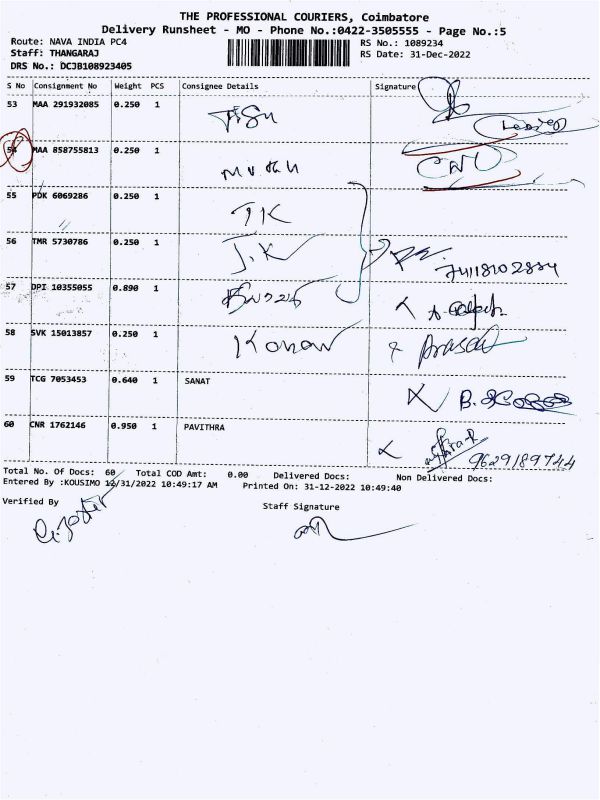 THE PROFESSIONAL COURIERS, Coimbatore
Delivery Runsheet - MO - Phone No.:0422-3505555 - Page No.:5
Route: NAVA INDIA PC4
RS No.: 1089234
Staff: THANGARAJ
RS Date: 31-Dec-2022
DRS No.: DCJB108923405
S No Consignment No Weight PCS Consignee Details Signature
53 MAA 291932085 0.250 1
54 MAA 858755813 0.250 1
55 PDK 6069286 0.250 1 T K
56 TMR 5730786 0.250 1 J.K
57 DPI 10355055 0.890 1
58 SVK 15013857 0.250 1
59 TCG 7053453 0.640 1 SANAT
60 CNR 1762146 0.950 1 PAVITHRA
9629189744
Total No. Of Docs: 60 Total COD Amt: 0.00 Delivered Docs: Non Delivered Docs:
Entered By :KOUSIMO 12/31/2022 10:49:17 AM Printed On: 31-12-2022 10:49:40
Verified By
Staff Signature